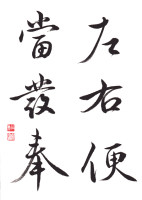 左右便
當發奉